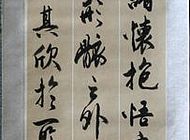 諸懷抱悟
形骸之外
其欣於所